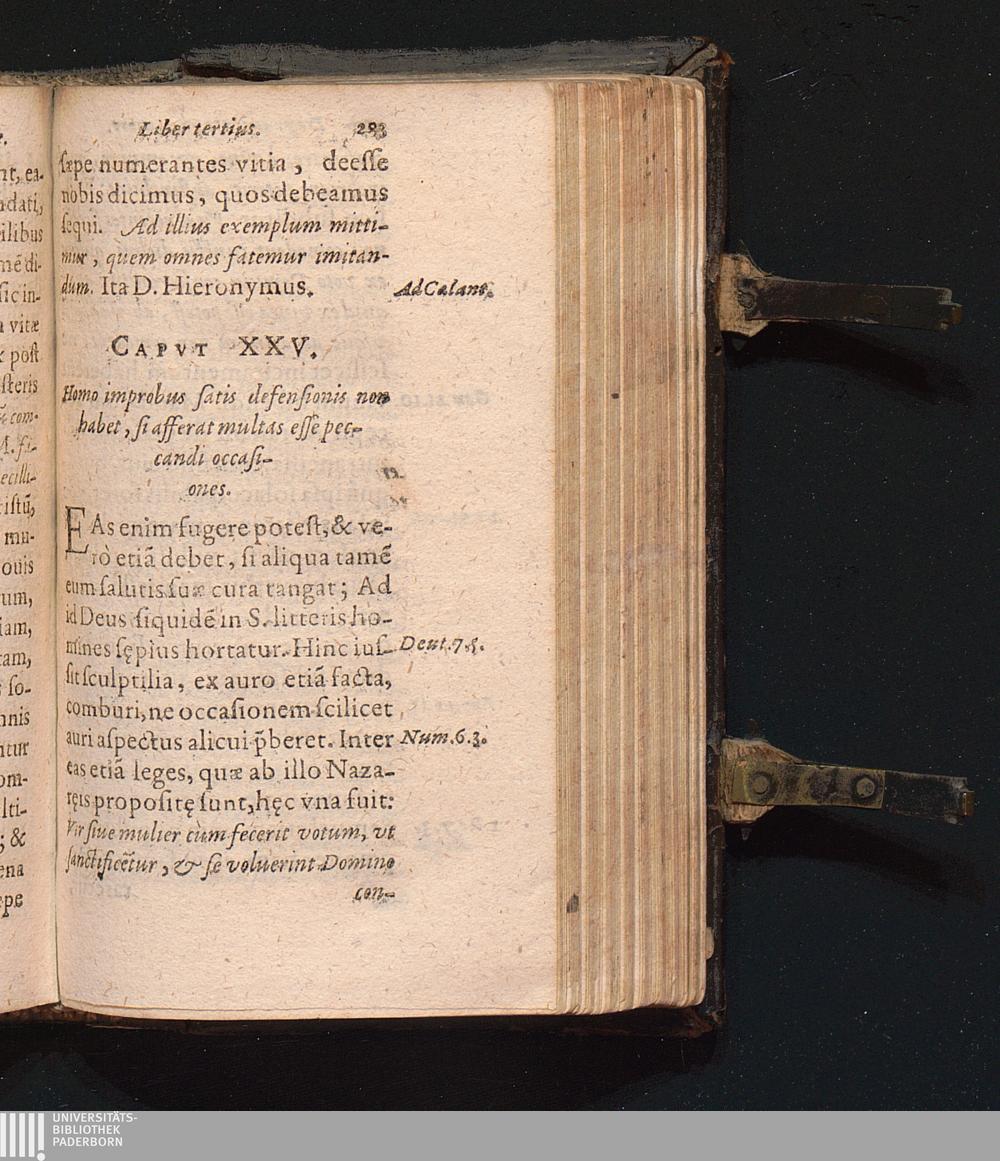 Liber tertius. 283
ſæpe numerantes vitia, deeſſe
nobis dicimus, quos debeamus
ſequi. Ad illius exemplum mitti-
mur, quem omnes fatemur imitan-
dum. Ita D. Hieronymus.
Ad Celant.
CAPVT XXV.
Homo improbus ſatis defenſionis non
habet, ſi afferat multas eſſe pec-
candi occaſi-
ones.
EAs enim fugere poteſt, & ve-
rò etiã debet, ſi aliqua tamẽ
eum ſalutis ſuæ cura tangat; Ad
id Deus ſiquidẽ in S. litteris ho-
mines ſępius hortatur. Hinc iuſ-
Deut. 7.5.
ſit ſculptilia, ex auro etiã facta,
comburi, ne occaſionem ſcilicet
auri aſpectus alicui p̃beret. Inter
Num. 6.3.
eas etiã leges, quæ ab illo Naza-
ręis propoſitę ſunt, hęc vna fuit:
Vir ſiue mulier cùm fecerit votum, vt
ſanctificẽtur, & ſe voluerint Domino
con-
nt, ea-
dati,
ilibus
mẽ di-
ſic in-
vitæ
poſt
ſteris
com-
A. ſi-
ecilli-
iſtũ,
mu-
ouis
um,
iam,
tam,
ſo-
nnis
ntur
om-
lti-
; &
ena
epe
UNIVERSITÄTS-
BIBLIOTHEK
PADERBORN